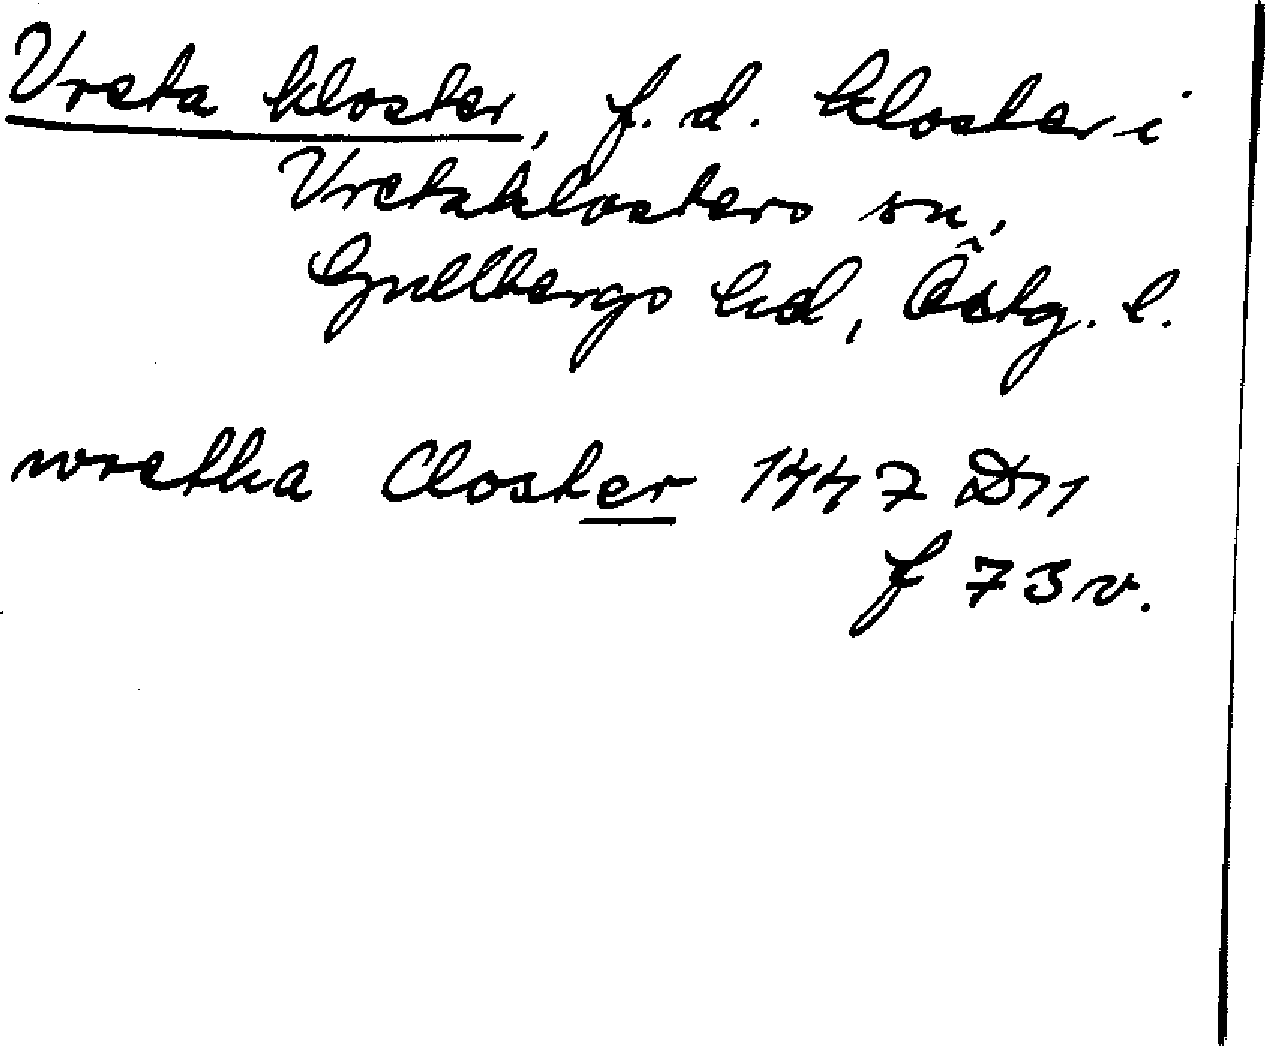 Vreta kloster, f. d. kloster i
Vretaklosters sn,
Gullbergs hd, Östg. l.
wretha Closter 1447 D11
f 73 v.